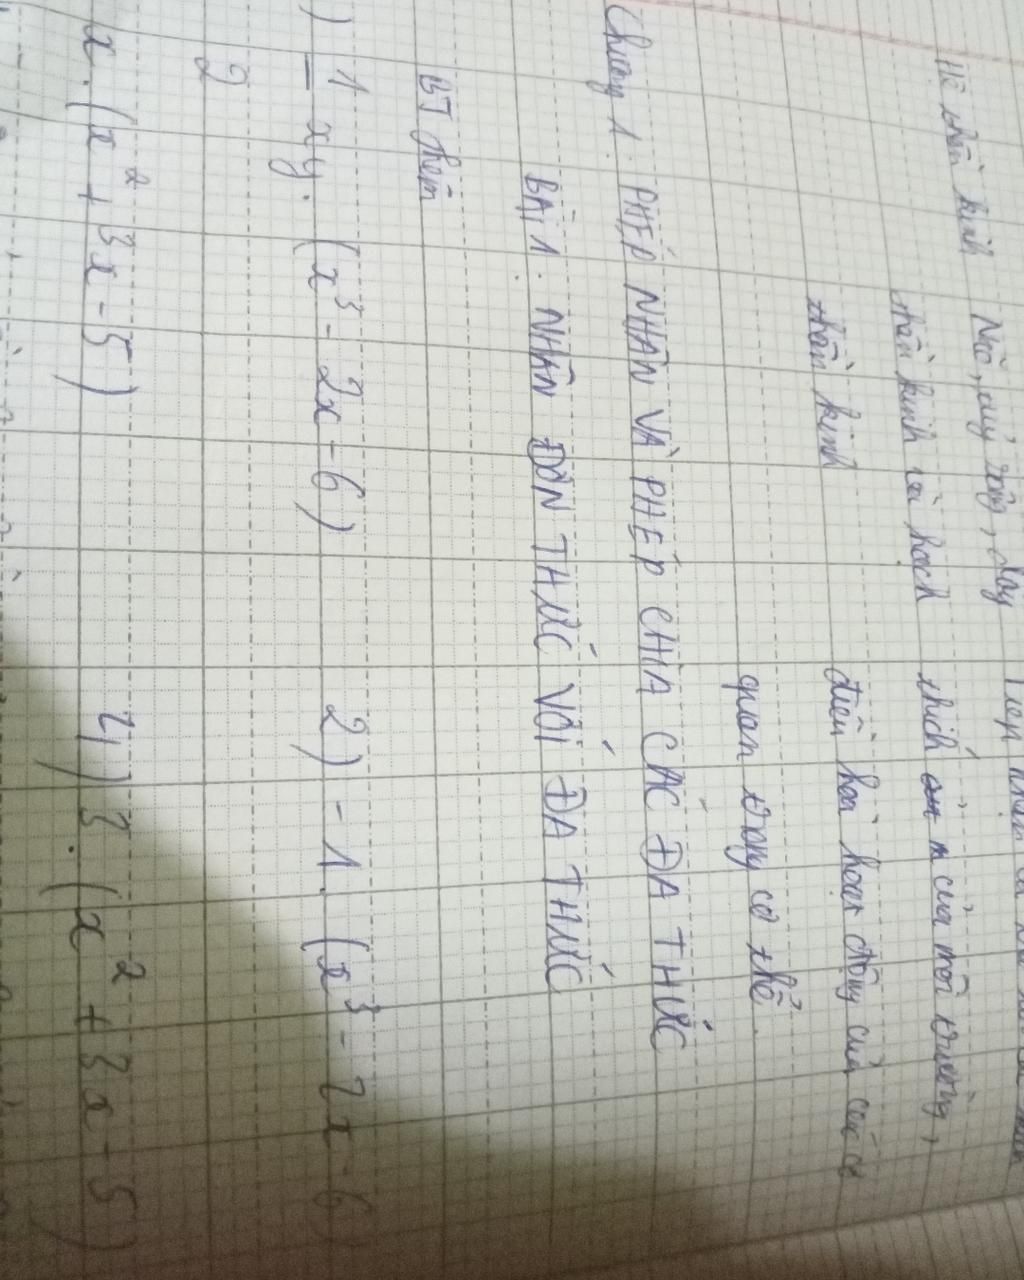 Hệ thần kinh Não, tủy sống, dây
thần kinh và hạch
thần kinh
thích m của môi trường,
điều hòa hoạt động của các cơ
quan trong cơ thể.
Chương 1: PHÉP NHÂN VÀ PHÉP CHIA CÁC ĐA THỨC
BÀI 1: NHÂN ĐƠN THỨC VỚI ĐA THỨC
BT thêm
) 1/2 xy. (x³ - 2x - 6) 2) - 1. (x³ - 2x - 6)
x. (x² + 3x - 5) 4) 3. (x² + 3x - 5)